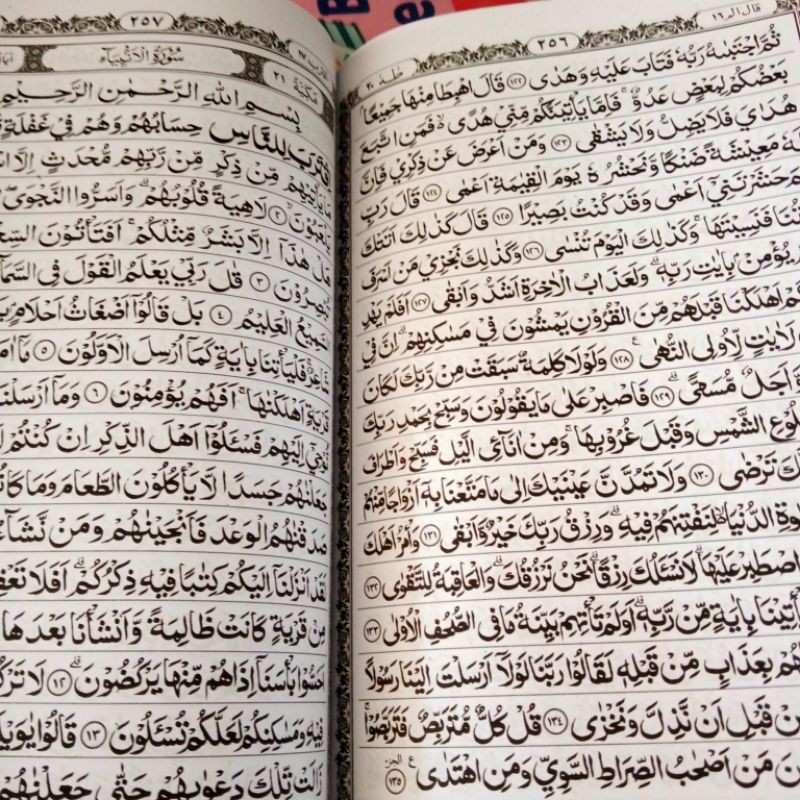 قال الم ١٦
٢٥٦
طٰهٰ ٢٠
ثُمَّ اجْتَبٰىهُ رَبُّهٗ فَتَابَ عَلَيْهِ وَهَدٰى ﴿١٢٢﴾ قَالَ اهْبِطَا مِنْهَا جَمِيْعًا
بَعْضُكُمْ لِبَعْضٍ عَدُوٌّ فَاِمَّا يَأْتِيَنَّكُمْ مِّنِّيْ هُدًى ەۙ فَمَنِ اتَّبَعَ
هُدَايَ فَلَا يَضِلُّ وَلَا يَشْقٰى ﴿١٢٣﴾ وَمَنْ اَعْرَضَ عَنْ ذِكْرِيْ فَاِنَّ
لَهٗ مَعِيْشَةً ضَنْكًا وَّنَحْشُرُهٗ يَوْمَ الْقِيٰمَةِ اَعْمٰى ﴿١٢٤﴾ قَالَ رَبِّ
لِمَ حَشَرْتَنِيْٓ اَعْمٰى وَقَدْ كُنْتُ بَصِيْرًا ﴿١٢٥﴾ قَالَ كَذٰلِكَ اَتَتْكَ
فَنَسِيْتَهَا وَكَذٰلِكَ الْيَوْمَ تُنْسٰى ﴿١٢٦﴾ وَكَذٰلِكَ نَجْزِيْ مَنْ اَسْرَفَ
يُؤْمِنْۢ بِاٰيٰتِ رَبِّهٖ وَلَعَذَابُ الْاٰخِرَةِ اَشَدُّ وَاَبْقٰى ﴿١٢٧﴾ اَفَلَمْ يَهْدِ
اَهْلَكْنَا قَبْلَهُمْ مِّنَ الْقُرُوْنِ يَمْشُوْنَ فِيْ مَسٰكِنِهِمْ اِنَّ فِيْ
لَاٰيٰتٍ لِّاُولِى النُّهٰى ﴿١٢٨﴾ وَلَوْلَا كَلِمَةٌ سَبَقَتْ مِنْ رَّبِّكَ لَكَانَ
اَجَلٌ مُّسَمًّى ﴿١٢٩﴾ فَاصْبِرْ عَلٰى مَا يَقُوْلُوْنَ وَسَبِّحْ بِحَمْدِ رَبِّكَ
الشَّمْسِ وَقَبْلَ غُرُوْبِهَا وَمِنْ اٰنَآئِ الَّيْلِ فَسَبِّحْ وَاَطْرَافَ
تَرْضٰى ﴿١٣٠﴾ وَلَا تَمُدَّنَّ عَيْنَيْكَ اِلٰى مَا مَتَّعْنَا بِهٖٓ اَزْوَاجًا مِّنْهُمْ
الدُّنْيَا لِنَفْتِنَهُمْ فِيْهِ وَرِزْقُ رَبِّكَ خَيْرٌ وَّاَبْقٰى ﴿١٣١﴾ وَأْمُرْ اَهْلَكَ
اصْطَبِرْ عَلَيْهَا لَا نَسْـَٔلُكَ رِزْقًا نَحْنُ نَرْزُقُكَ وَالْعَاقِبَةُ لِلتَّقْوٰى ﴿١٣٢﴾
بِاٰيَةٍ مِّنْ رَّبِّهٖ اَوَلَمْ تَأْتِهِمْ بَيِّنَةُ مَا فِى الصُّحُفِ الْاُوْلٰى ﴿١٣٣﴾
بِعَذَابٍ مِّنْ قَبْلِهٖ لَقَالُوْا رَبَّنَا لَوْلَآ اَرْسَلْتَ اِلَيْنَا رَسُوْلًا
مِنْ قَبْلِ اَنْ نَّذِلَّ وَنَخْزٰى ﴿١٣٤﴾ قُلْ كُلٌّ مُّتَرَبِّصٌ فَتَرَبَّصُوْا
مَنْ اَصْحٰبُ الصِّرَاطِ السَّوِيِّ وَمَنِ اهْتَدٰى ﴿١٣٥﴾
٢٥٧
سُوْرَةُ الْاَنْبِيَآءِ
مَكِّيَّة ٢١
بِسْمِ اللّٰهِ الرَّحْمٰنِ الرَّحِيْمِ
اِقْتَرَبَ لِلنَّاسِ حِسَابُهُمْ وَهُمْ فِيْ غَفْلَةٍ
مَا يَأْتِيْهِمْ مِّنْ ذِكْرٍ مِّنْ رَّبِّهِمْ مُّحْدَثٍ اِلَّا
يَلْعَبُوْنَ ﴿٢﴾ لَاهِيَةً قُلُوْبُهُمْ وَاَسَرُّوا النَّجْوَى
هَلْ هٰذَآ اِلَّا بَشَرٌ مِّثْلُكُمْ اَفَتَأْتُوْنَ
تُبْصِرُوْنَ ﴿٣﴾ قٰلَ رَبِّيْ يَعْلَمُ الْقَوْلَ فِى
السَّمِيْعُ الْعَلِيْمُ ﴿٤﴾ بَلْ قَالُوْٓا اَضْغَاثُ اَحْلَامٍ
شَاعِرٌ فَلْيَأْتِنَا بِاٰيَةٍ كَمَآ اُرْسِلَ الْاَوَّلُوْنَ ﴿٥﴾
قَرْيَةٍ اَهْلَكْنٰهَا اَفَهُمْ يُؤْمِنُوْنَ ﴿٦﴾ وَمَآ اَرْسَلْنَا
نُّوْحِيْٓ اِلَيْهِمْ فَسْـَٔلُوْٓا اَهْلَ الذِّكْرِ اِنْ كُنْتُمْ
جَعَلْنٰهُمْ جَسَدًا لَّا يَأْكُلُوْنَ الطَّعَامَ وَمَا
صَدَقْنٰهُمُ الْوَعْدَ فَاَنْجَيْنٰهُمْ وَمَنْ نَّشَآءُ
لَقَدْ اَنْزَلْنَآ اِلَيْكُمْ كِتٰبًا فِيْهِ ذِكْرُكُمْ اَفَلَا
مِنْ قَرْيَةٍ كَانَتْ ظَالِمَةً وَّاَنْشَأْنَا بَعْدَهَا
اَحَسُّوْا بَأْسَنَآ اِذَا هُمْ مِّنْهَا يَرْكُضُوْنَ ﴿١٢﴾ لَا
فِيْهِ وَمَسٰكِنِكُمْ لَعَلَّكُمْ تُسْـَٔلُوْنَ ﴿١٣﴾ قَالُوْا يٰوَيْلَنَآ
زَالَتْ تِّلْكَ دَعْوٰىهُمْ حَتّٰى جَعَلْنٰهُمْ